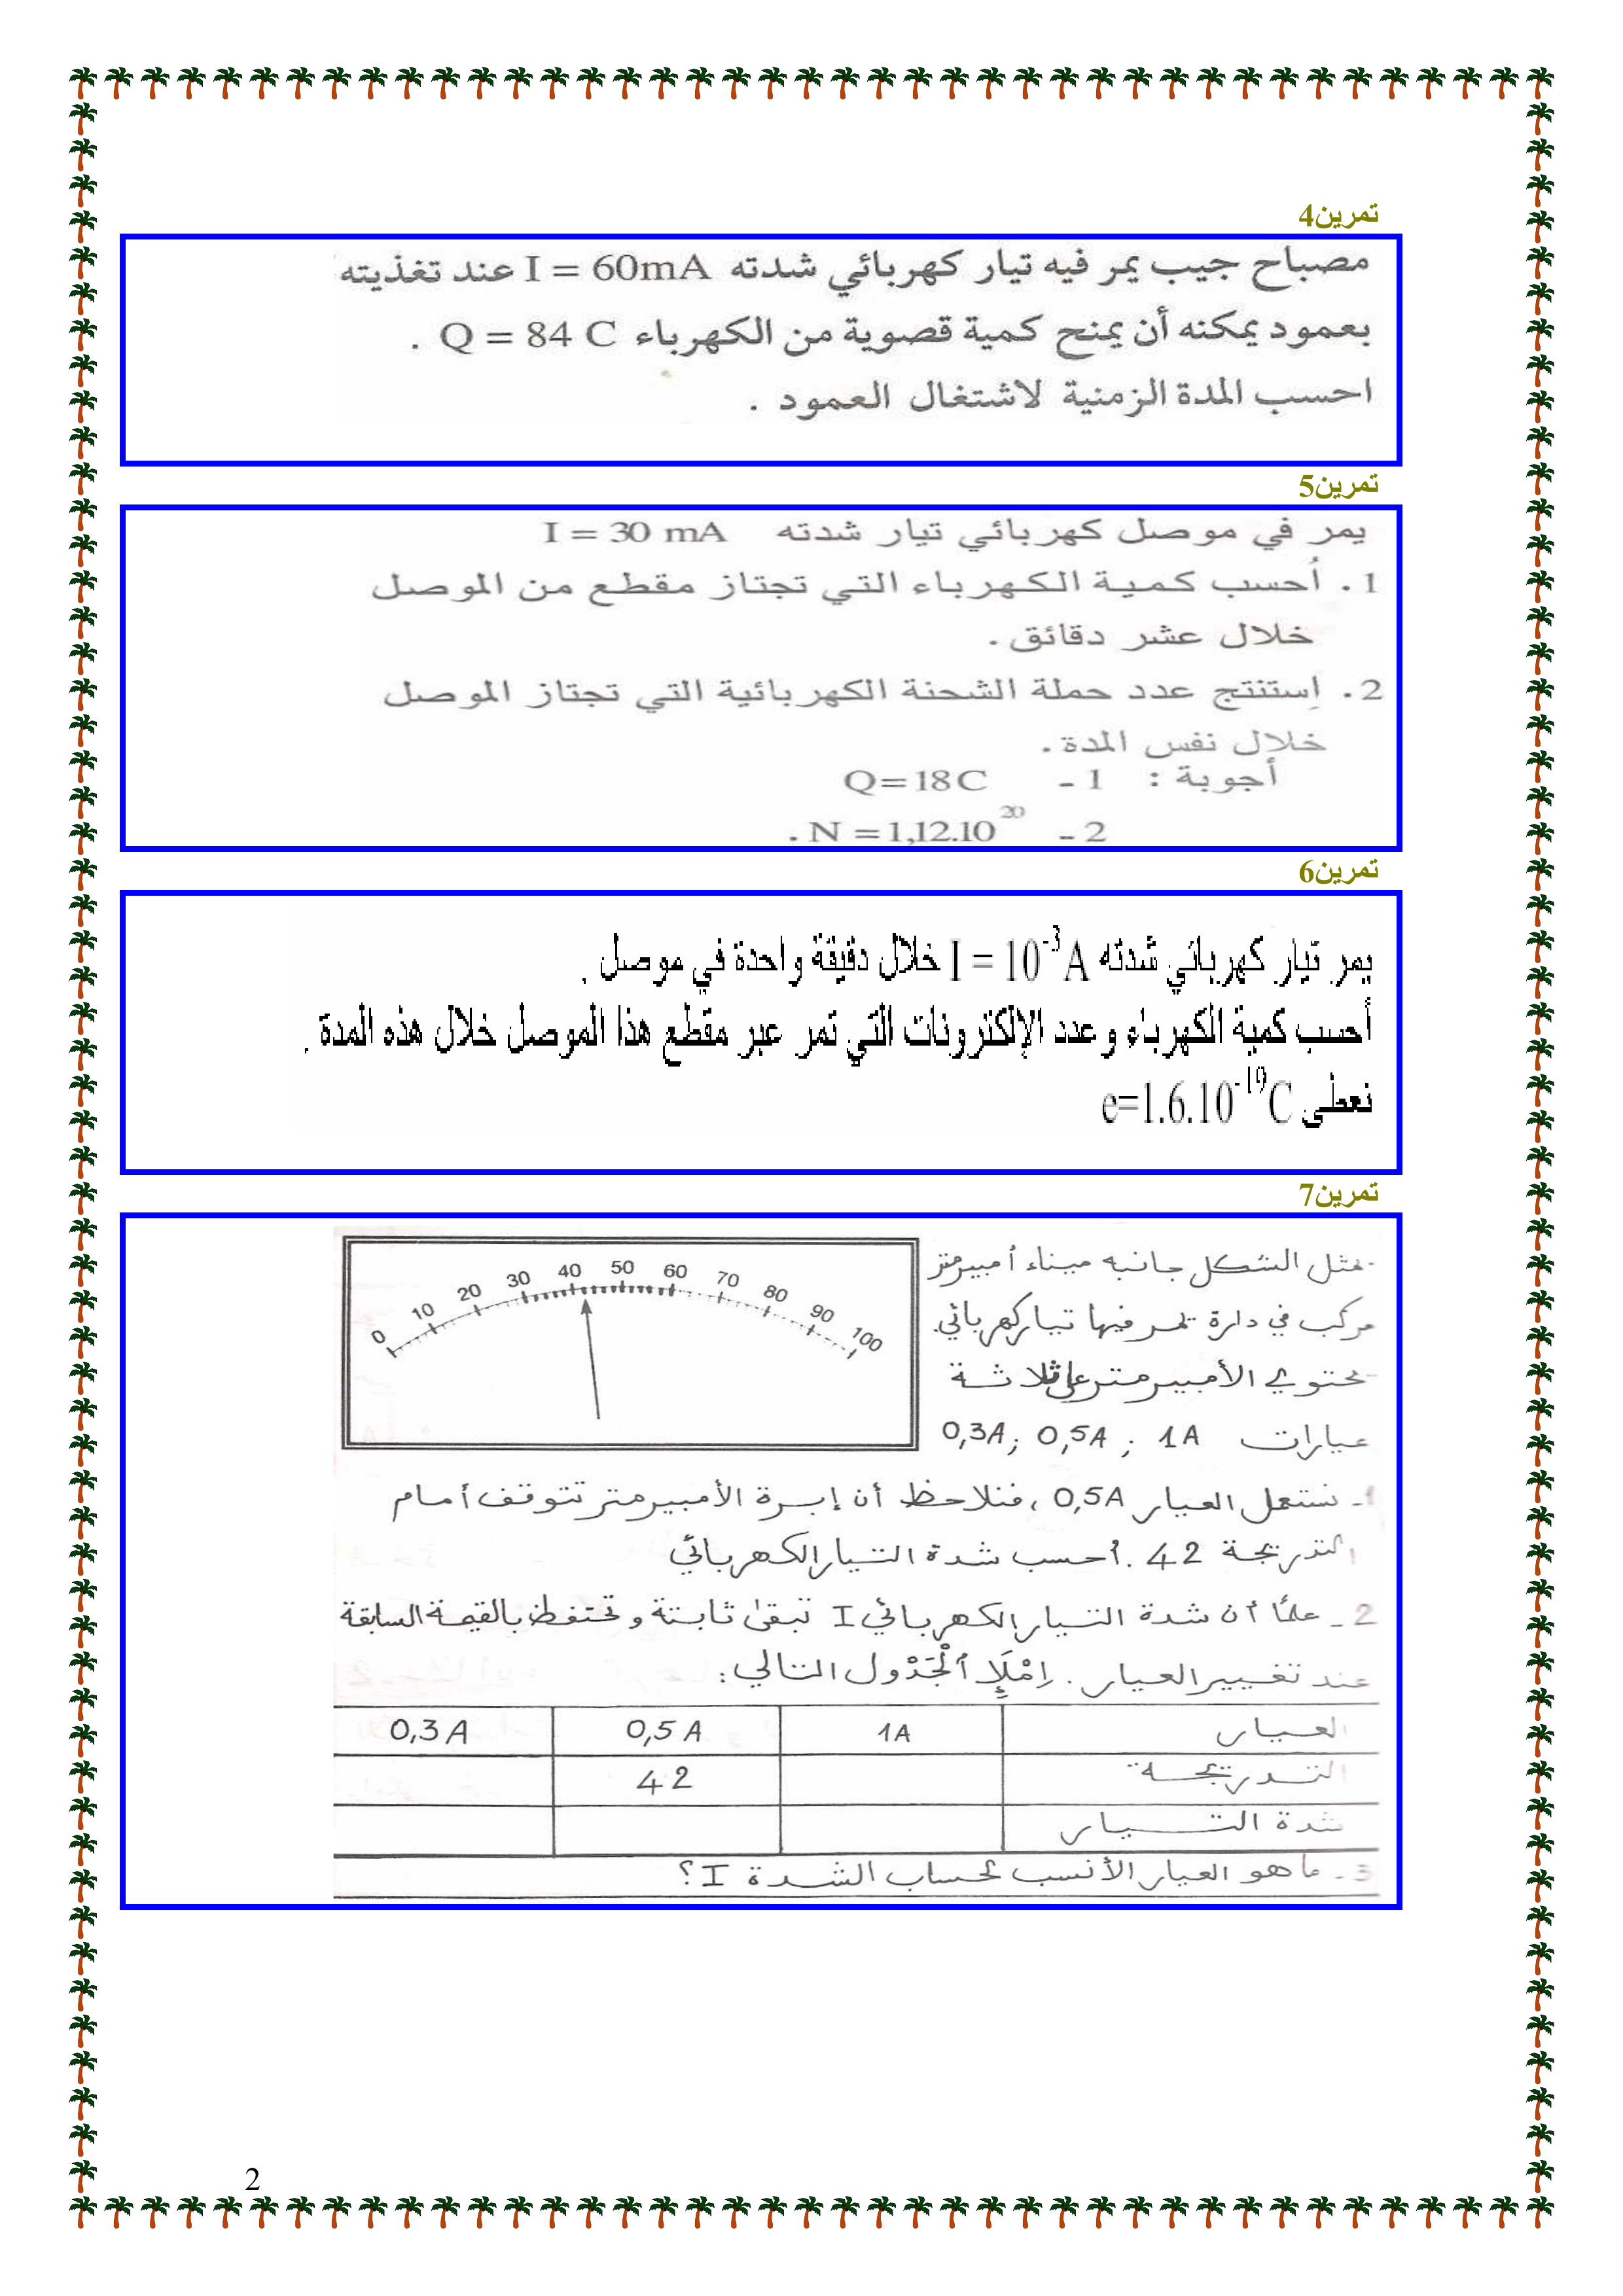 تمرين4
مصباح جيب يمر فيه تيار كهربائي شدته I = 60mA عند تغذيته
بعمود يمكنه أن يمنح كمية قصوية من الكهرباء Q = 84 C .
احسب المدة الزمنية لاشتغال العمود .
تمرين5
يمر في موصل كهربائي تيار شدته I = 30 mA
1. أحسب كمية الكهرباء التي تجتاز مقطع من الموصل
خلال عشر دقائق .
2. إستنتج عدد حملة الشحنة الكهربائية التي تجتاز الموصل
خلال نفس المدة .
أجوبة : 1 - Q=18C
2 - N = 1,12.10²⁰ .
تمرين6
يمر تيار كهربائي شدته I = 10⁻³A خلال دقيقة واحدة في موصل .
أحسب كمية الكهرباء وعدد الإلكترونات التي تمر عبر مقطع هذا الموصل خلال هذه المدة .
نعطي e=1.6.10⁻¹⁹C
تمرين7
يمثل الشكل جانبه ميناء أمبيرمتر
مركب في دارة يمر فيها تيار كهربائي.
يحتوي الأمبيرمتر على ثلاثة
عيارات 1A ; 0,5A ; 0,3A
0 10 20 30 40 50 60 70 80 90 100
1- نستعمل العيار 0,5A ، فنلاحظ أن إبرة الأمبيرمتر تتوقف أمام
التدريجة 42 . أحسب شدة التيار الكهربائي
2- علما أن شدة التيار الكهربائي I تبقى ثابتة و تحتفظ بالقيمة السابقة
عند تغيير العيار . إِمْلَإِ اُلْجَدْول التالي :
العيار 1A 0,5A 0,3A
التدريجة 42
شدة التيار
3- ما هو العيار الأنسب لحساب الشدة I ؟
2